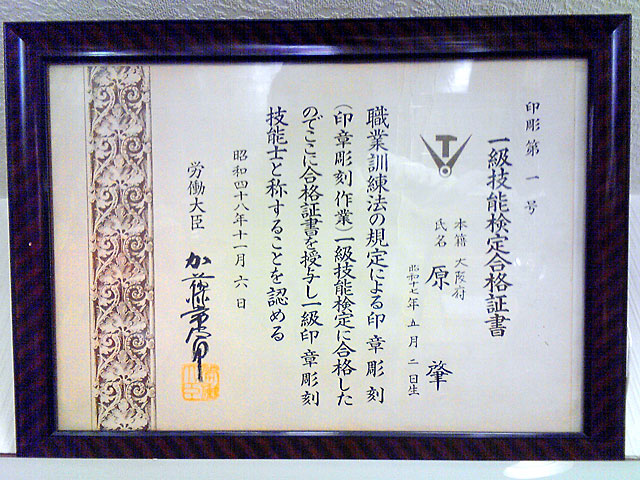 印彫第一号
一級技能検定合格証書
本籍 大阪府
氏名 原 肇
昭和十七年五月二日生
職業訓練法の規定による印章彫刻
(印章彫刻作業)一級技能検定に合格した
のでここに合格証書を授与し一級印章彫刻
技能士と称することを認める
昭和四十八年十一月六日
労働大臣 加藤常太郎